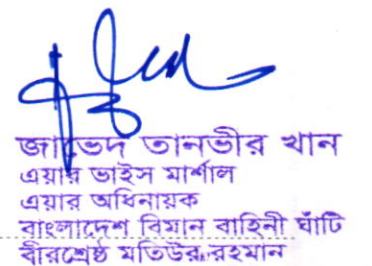 জাভেদ তানভীর খান
এয়ার ভাইস মার্শাল
এয়ার অধিনায়ক
বাংলাদেশ বিমান বাহিনী ঘাঁটি
বীরশ্রেষ্ঠ মতিউর রহমান